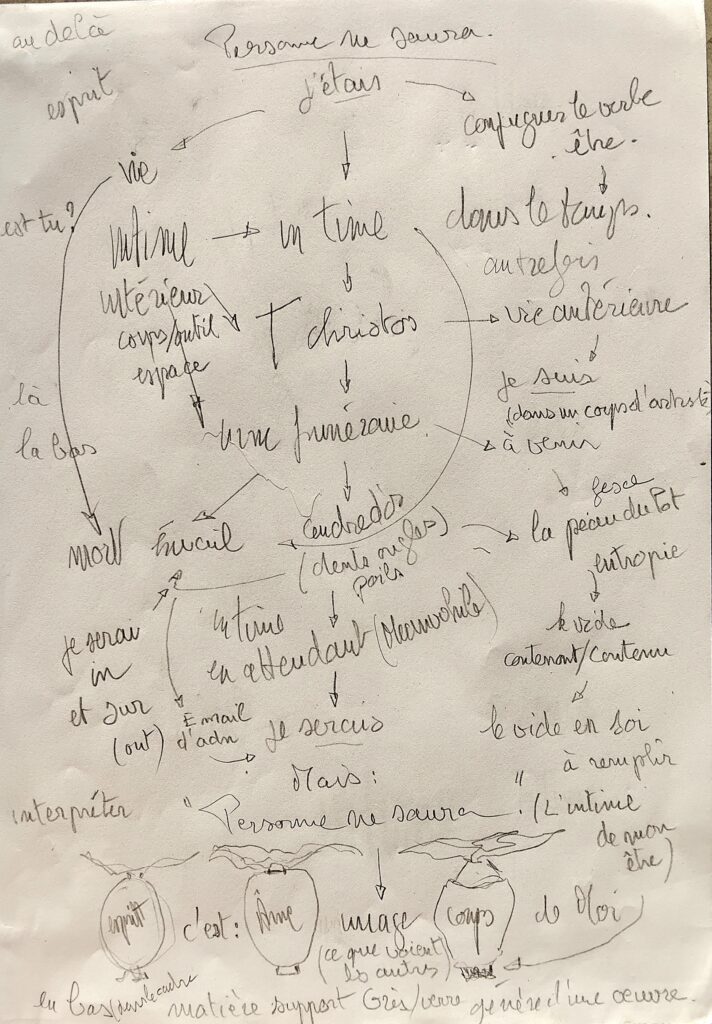 au delà
Personne ne saura.
esprit
j'étais
conjuguer le verbe
être.
vie
est tu?
intime
in time
dans le temps.
autrefois
intérieur
corps/outil
espace
T christos
vie antérieure
je suis
(dans un corps d'artiste)
là
là bas
urne funéraire
à venir
mort
cendres d'os
(dents ongles
poils)
la peau du Pot
entropie
je serai
in
et sur
(out)
in time
en attendant (Meanwhile)
le vide
contenant/contenu
Email
d'adn
je serais
le vide en soi
à remplir
Mais:
interpréter
"Personne ne saura". (L'intime
de mon
être)
esprit
c'est:
Âme
image
(ce que voient
les autres)
corps
de Moi
en bas
matière support Grès/verre génère d'une œuvre.